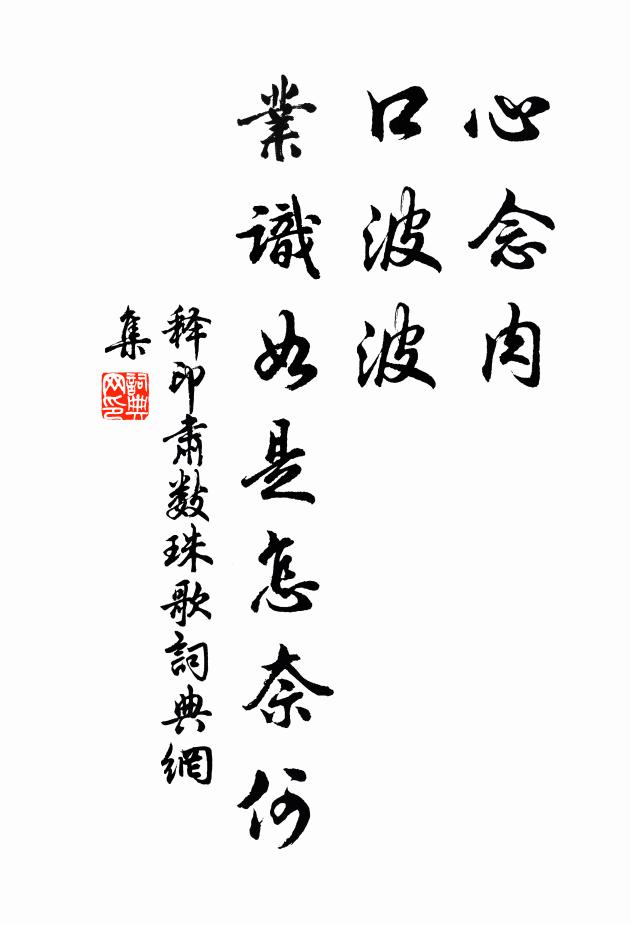 心念肉
口波波
業識如是怎奈何
释印肅数珠歌詞典網
集
詞典
网印